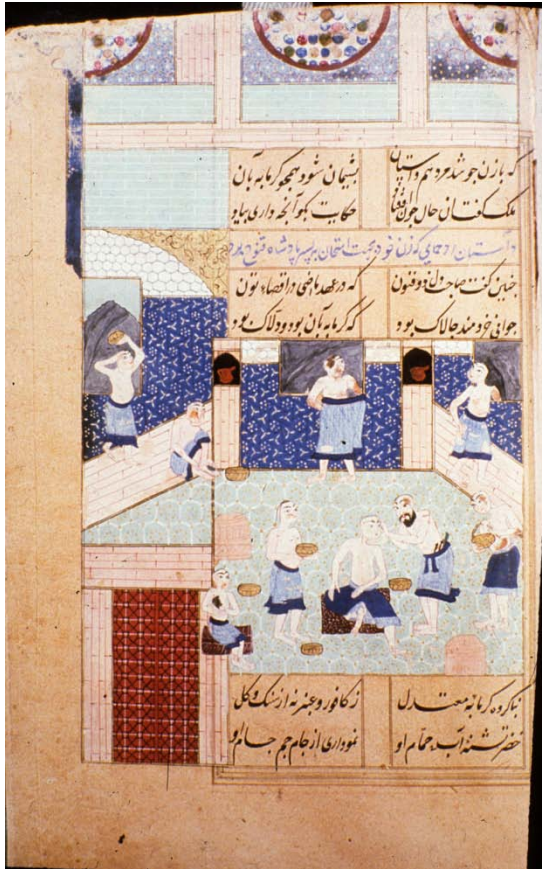 که با زن جو شد مرد هم داستان پشیمان شود همچو کرمابه بان
ملک کفت آن حال جون حکایت بکو آنچه داری بیاد
داستان که زن خود بجهت امتحان بر پسر پادشاه قنوج برد
جنین کفت صاحب دل ذوفنون که در عهد ماضی در اقصاء
جوانی خردمند جالاک بود که کرمابه بان بود و دلاک بود
بنا کرده کرمابه معتدل ز کافور و عنبر نه از سنک و کل
خضر تشنه آب حمام او نموداری از جام جم جام او